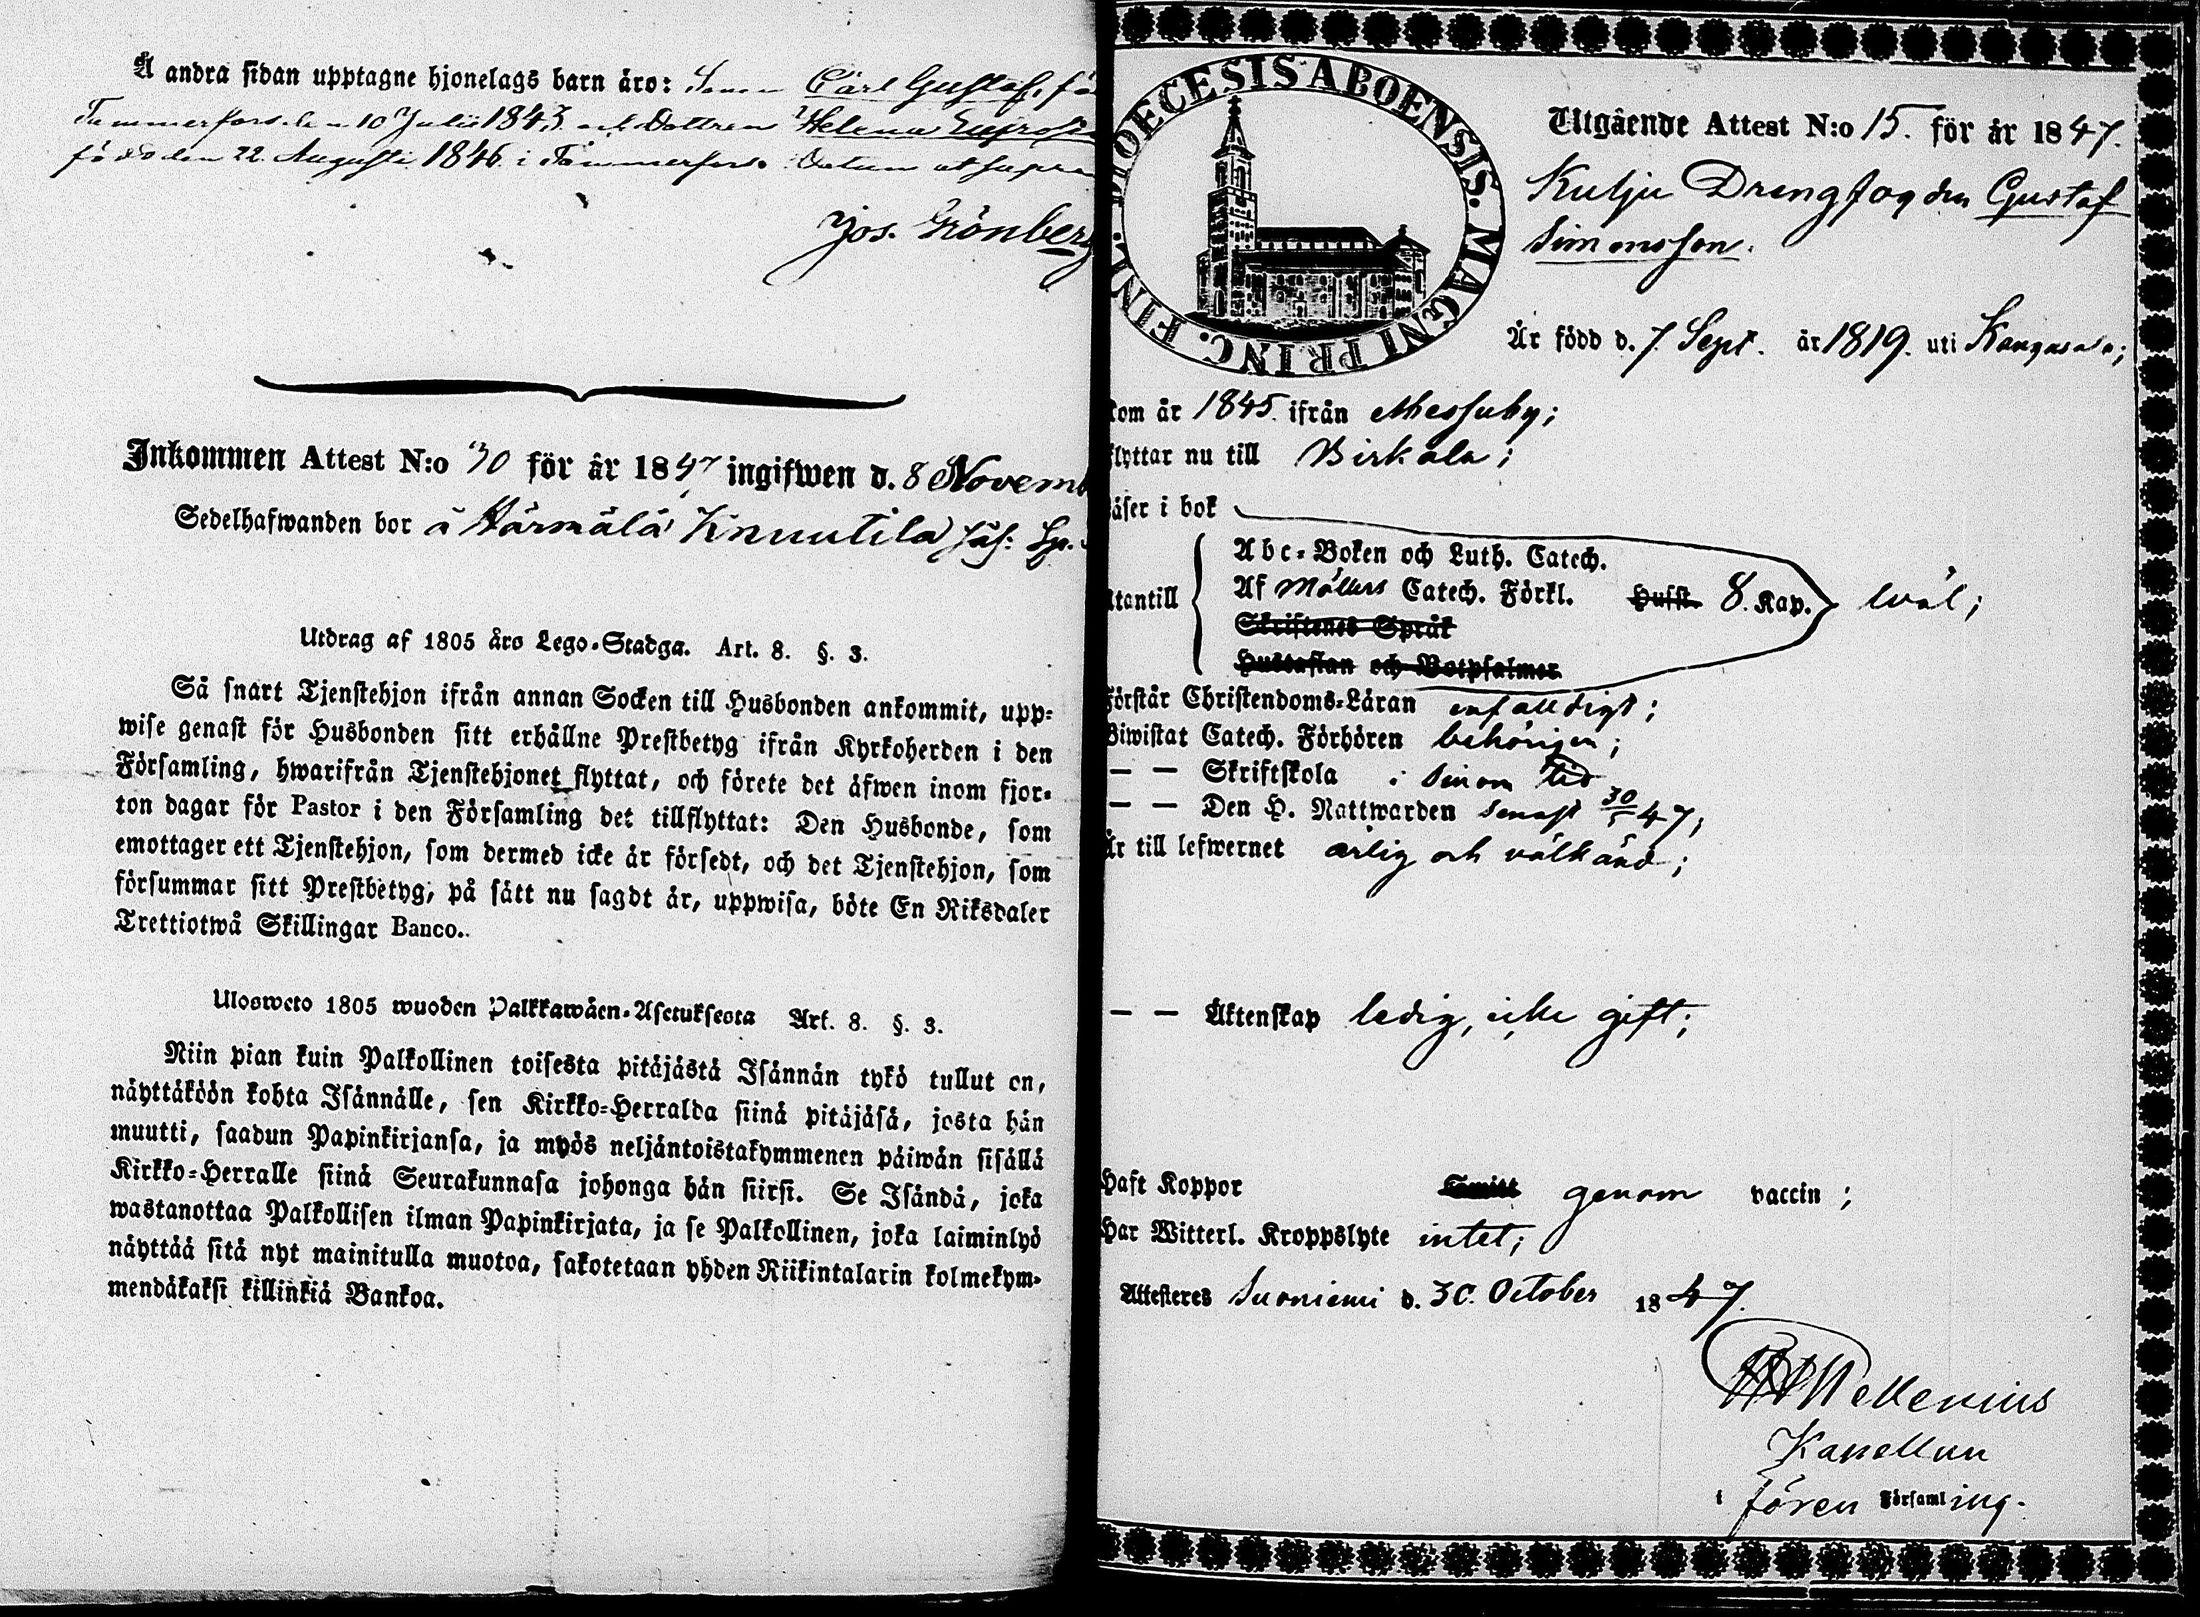 Å andra sidan upptagne hjonelags barn äro: Sonen Carl Gustaf, fö
Tammerfors den 10 Julii 1843. och Dottren Helena
född den 22. Augusti 1846. i Tammerfors. Datum ut supra
Jos. Grönberg
Inkommen Attest N:o 30 för år 1847 ingifwen d. 8 Novemb
Sedelhafwanden bor å Härmälä Knuutila
Utdrag af 1805 års Lego-Stadga. Art. 8. §. 3.
Så snart Tjenstehjon ifrån annan Socken till Husbonden ankommit, upp-
wise genast för Husbonden sitt erhållne Prestbetyg ifrån Kyrkoherden i den
Församling, hwarifrån Tjenstehjonet flyttat, och förete det äfwen inom fjor-
ton dagar för Pastor i den Församling det tillflyttat: Den Husbonde, som
emottager ett Tjenstehjon, som dermed icke är försedt, och det Tjenstehjon, som
försummar sitt Prestbetyg, på sätt nu sagdt är, uppwisa, böte En Riksdaler
Trettiotwå Skillingar Banco.
Ulosweto 1805 wuoden Palkkawäen-Asetuksesta Art. 8. §. 3.
Niin pian kuin Palkollinen toisesta pitäjästä Isännän tykö tullut on,
näyttäköön kohta Isännälle, sen Kirkko-Herralda siinä pitäjäsä, josta hän
muutti, saadun Papinkirjansa, ja myös neljäntoistakymmenen päiwän sisällä
Kirkko-Herralle siinä Seurakunnasa johonga hän siirsi. Se Isändä, joka
wastanottaa Palkollisen ilman Papinkirjata, ja se Palkollinen, joka laiminlyö
näyttää sitä nyt mainitulla muotoa, sakotetaan yhden Riikintalarin kolmekym-
mendäkaksi killinkiä Bankoa.
DIOECESIS ABOENSIS. MAGNI PRINC. FINL.
Utgående Attest N:o 15. för år 1847.
Kulju Drengfogden Gustaf
Simonsson.
Är född d. 7. Sept. år 1819. uti Kangasala;
kom år 1845. ifrån Messuby;
flyttar nu till Birkala;
läser i bok
Abc-Boken och Luth. Catech.
utantill Af Möllers Catech. Förkl. Husst. 8. Kap. wäl;
Skriftenes Språk
Hustaflan och Botpsalmer
Förstår Christendoms-Läran enfalldigt;
Biwistat Catech. Förhören behörigen;
— — Skriftskola i sinom tid
— — Den H. Nattwarden senast 30/5 47;
Är till lefwernet ärlig och välkänd;
— — Äktenskap ledig, icke gift;
Haft Koppor Smitt genom vaccin;
Har Witterl. Kroppslyte intet;
Attesteres Suoniemi d. 30. October 1847.
Hellenius
Kapellan
i fören Församling.